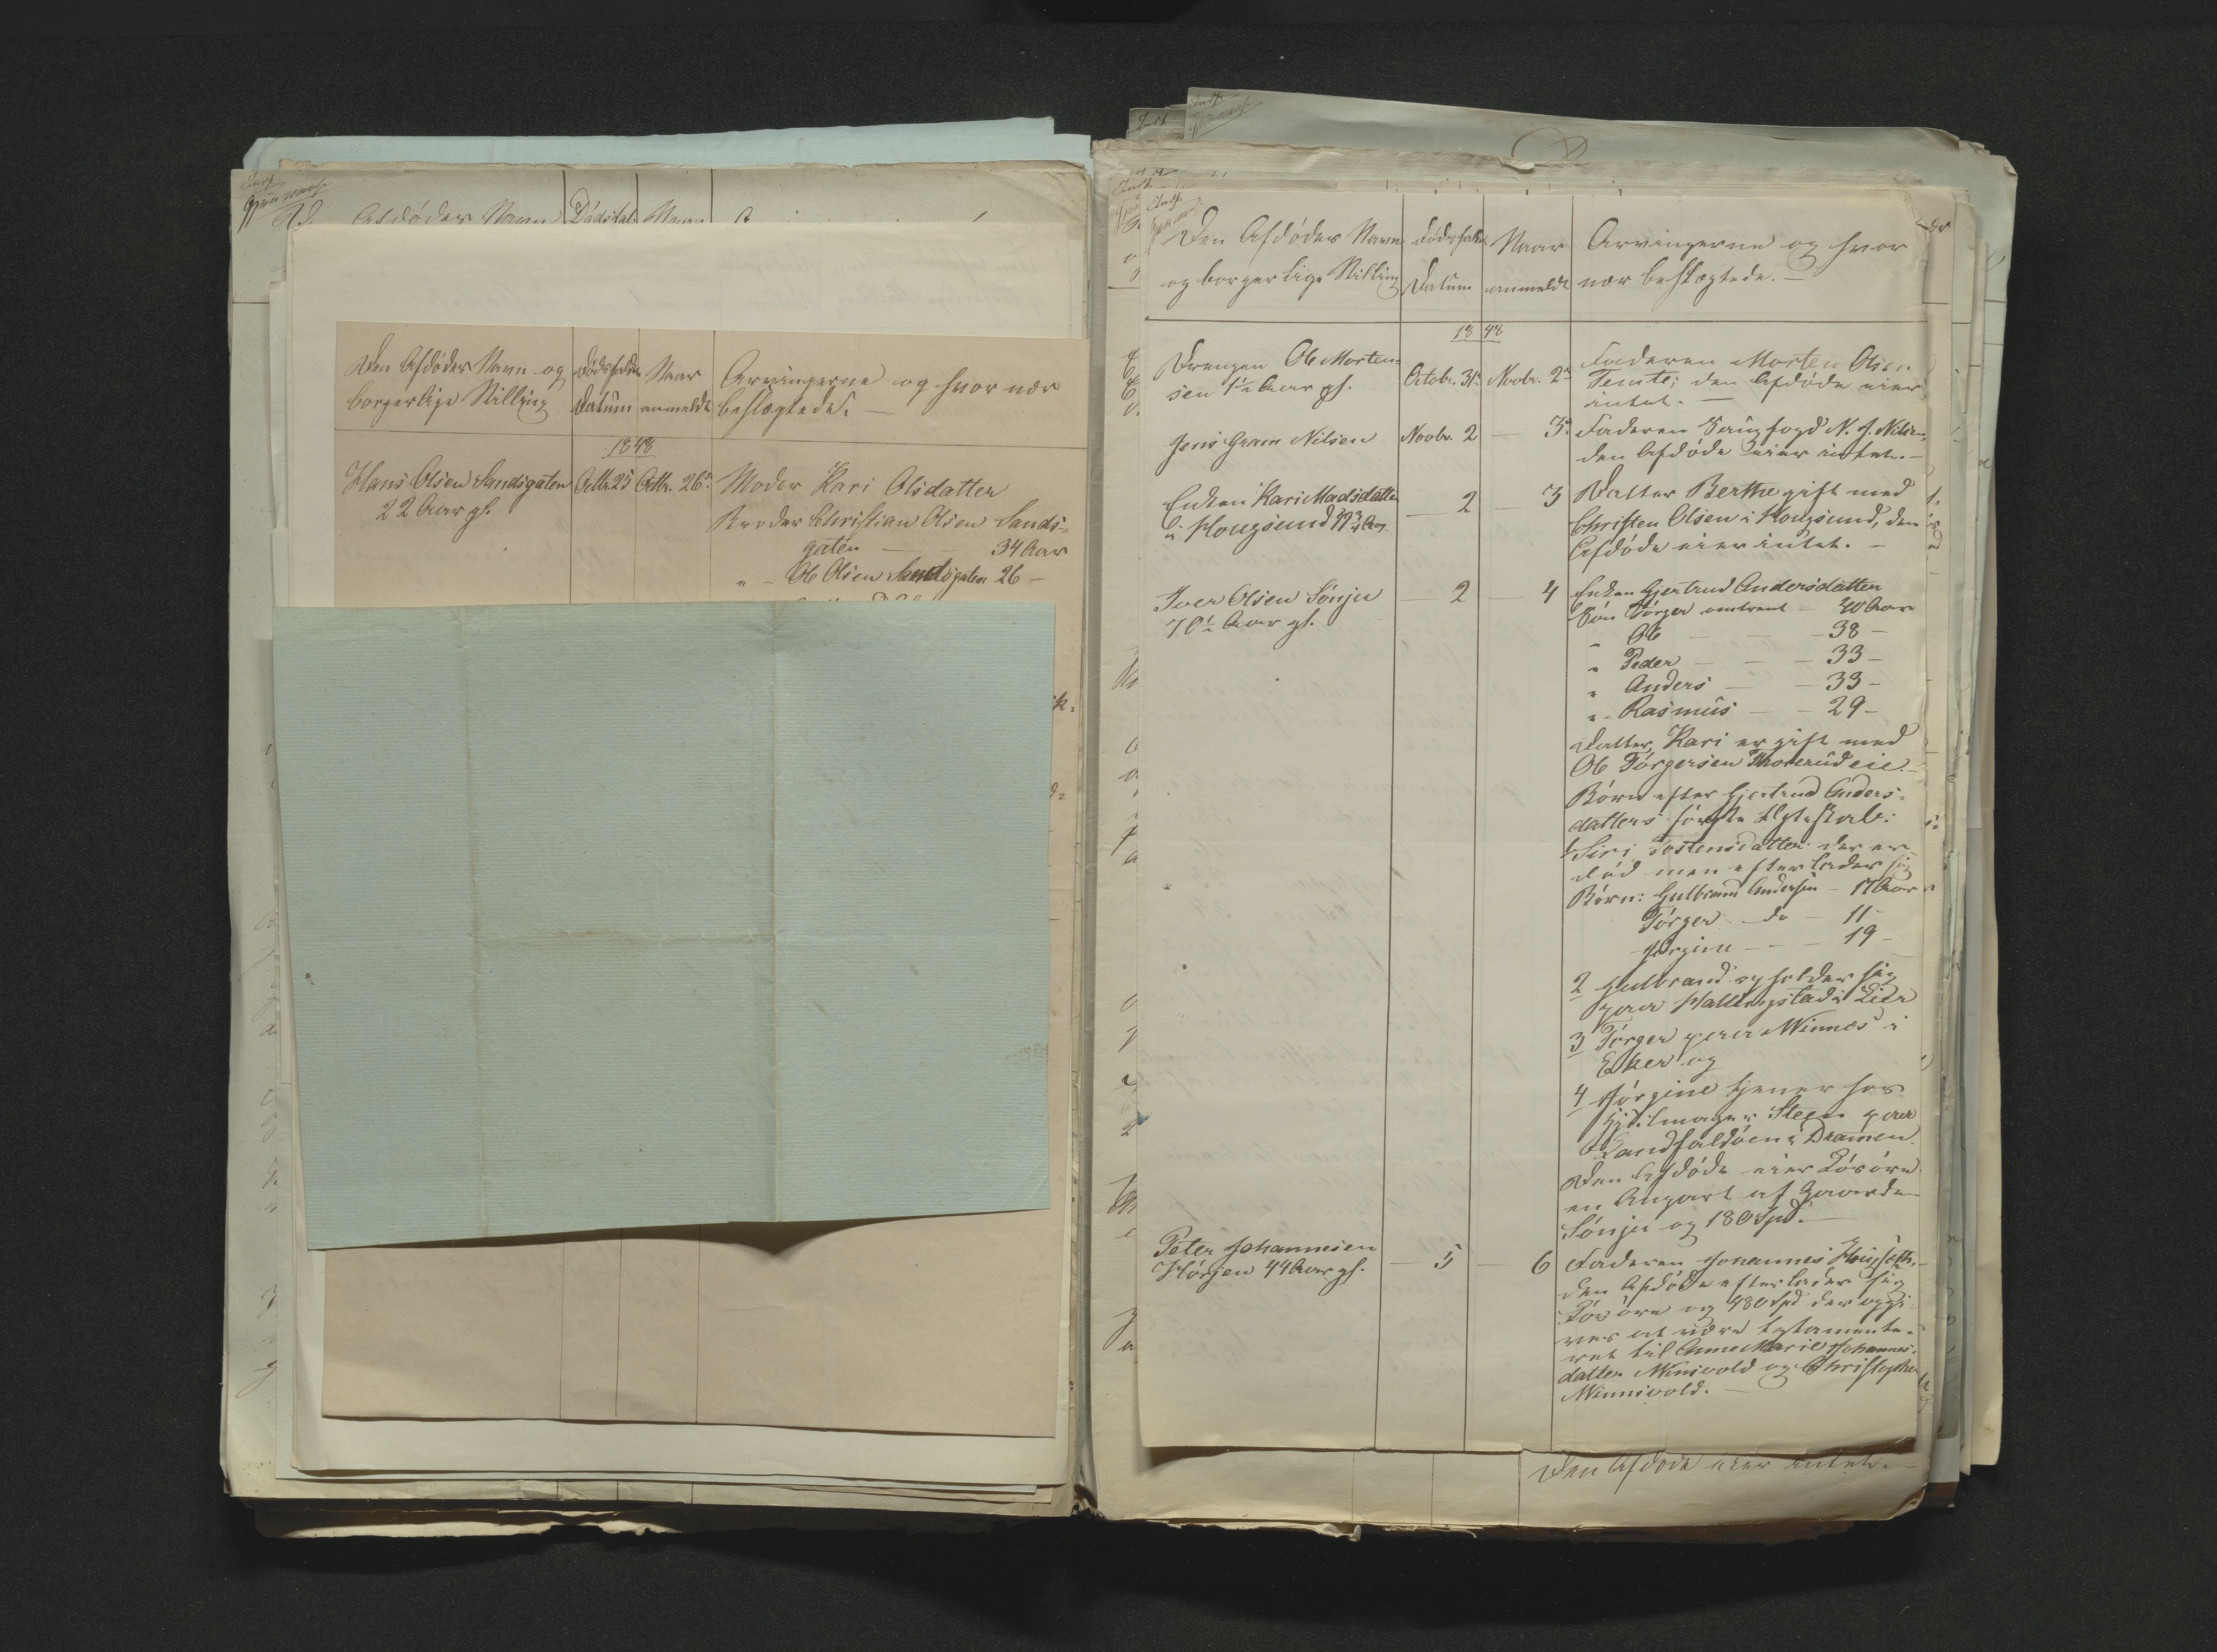 Afdødes Navn Dødsfal. Naar
Den Afdødes Navn og
borgerlige Stilling
Dødsfaldets
Datum
Naar
anmeldt
Arvingerne og hvor nær
beslægtede. —
1848
Hans Olsen Sandsgaten
22 Aar gl.
Octbr. 25
Octbr. 26
Moder Kari Olsdatter
Broder Christian Olsen Sands-
gaten — 34 Aar
" - Ole Olsen Sandsgaten 26 —
Den Afdødes Navn
og borgerlige Stilling
Dødsfaldets
Datum
Naar
anmeldt
Arvingerne og hvor
nær beslægtede. —
1848
Drengen Ole Morten-
sen 1½ Aar gl.
Octobr. 31
Novbr. 2
Faderen Morten Olsen
Temte; den Afdøde eier
intet. —
Jens Gram Nilsen
Novbr. 2
— 3
Faderen Fangfogd N. J. Nilsen,
den Afdøde eier intet. —
Enken Kari Madsdatter
i Hougsund
— 2
— 3
Datter Berthe gift med
Christen Olsen i Hougsund, den
Afdøde eier intet. —
Iver Olsen Sønju
70½ Aar gl.
— 2
— 4
Enken Gjertrud Andersdatter
Søn Tørger omtrent — 40 Aar
" Ole — — 38 —
" Peder — — 33 —
" Anders — — 33 —
" Rasmus — — 29 —
Datter Kari er gift med
Ole Tørgersen eie. —
Børn efter Gjertrud Anders-
datters første Ægteskab:
1 Siri Tostensdatter der er
død men efterlader sig
Børn: Gulbrand Andersen — 17 Aar
Tørger — do — 11 —
Jørgine — — 19 —
2 Gulbrand opholder sig
paa Hallingstad i Lier
3 Tørger paa Winnæs i
Eker og
4 Jørgine tjener hos
Hjulmager Steen paa
Landfaldøen i Dramen.
Den Afdøde eier Løsøre
en Anpart af Gaarden
Sønju og 180 Spd. —
Peter Johannesen
Hørgen 44 Aar gl.
— 5
— 6
Faderen Johannes
den Afdøde efterlader sig
Løsøre og 480 Spd der opgi-
ves at være testamente-
ret til Anne Marie Johannes-
datter Winsvold og Christopher
Winnsvold. —
Den Afdøde eier intet. —